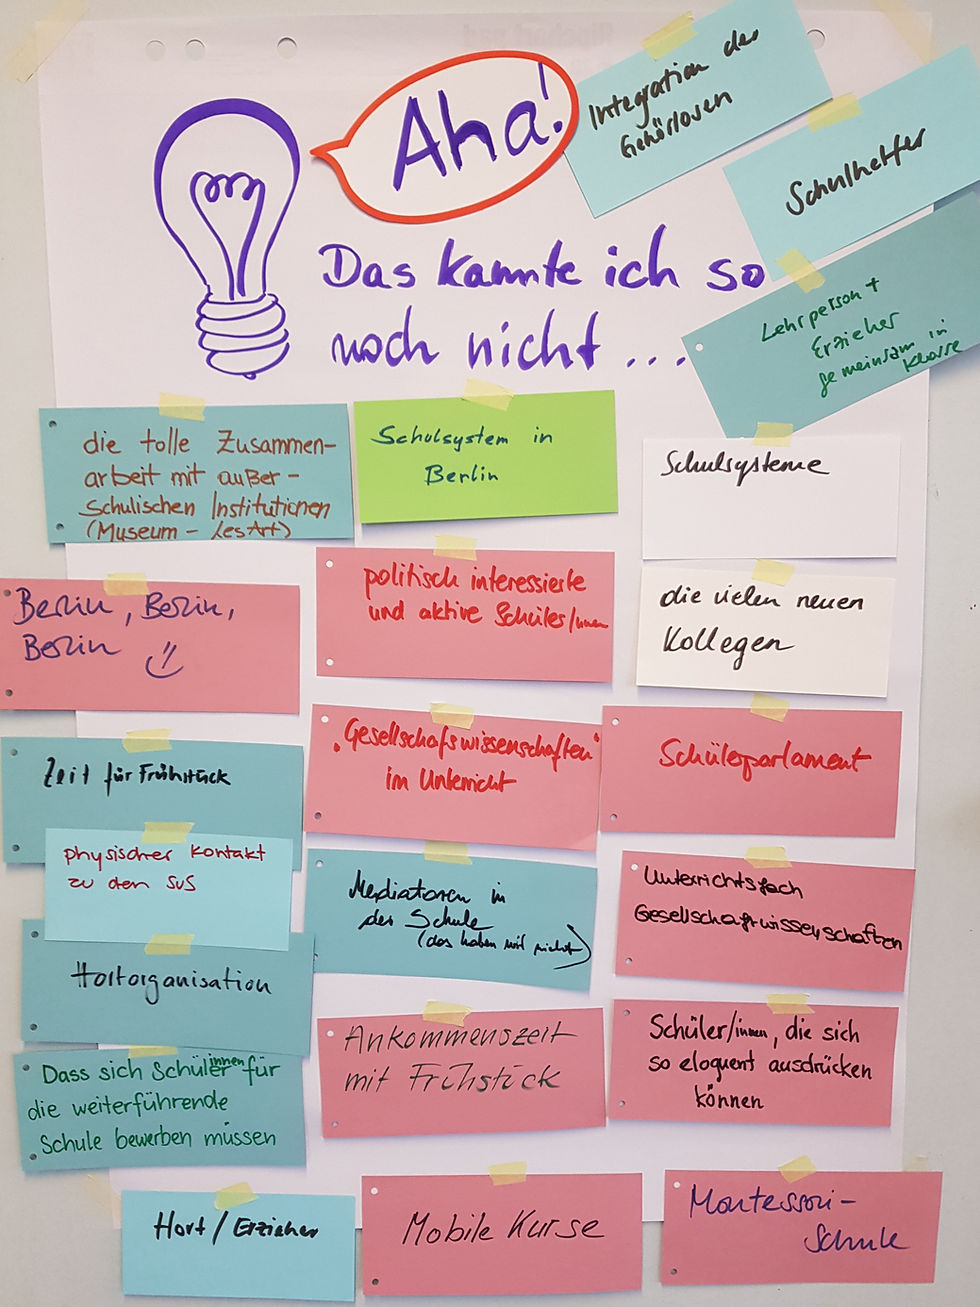 Aha!
Das kannte ich so
noch nicht ...
Integration der
Gehörlosen
Schulhelfer
Lehrperson +
Erzieher
gemeinsam in
Klasse
die tolle Zusammen-
arbeit mit außer-
schulischen Institutionen
(Museum - LesArt)
Schulsystem in
Berlin
Schulsysteme
Berlin, Berlin,
Berlin
politisch interessierte
und aktive Schüler/innen
die vielen neuen
Kollegen
Zeit für Frühstück
„Gesellschafswissenschaften"
im Unterricht
Schülerparlament
physischer Kontakt
zu den SuS
Mediatoren in
der Schule
(das haben wir nicht)
Unterrichtsfach
Gesellschaftswissenschaften
Hortorganisation
Ankommenszeit
mit Frühstück
Schüler/innen, die sich
so eloquent ausdrücken
können
Dass sich Schülerinnen für
die weiterführende
Schule bewerben müssen
Hort / Erzieher
Mobile Kurse
Montessori-
Schule